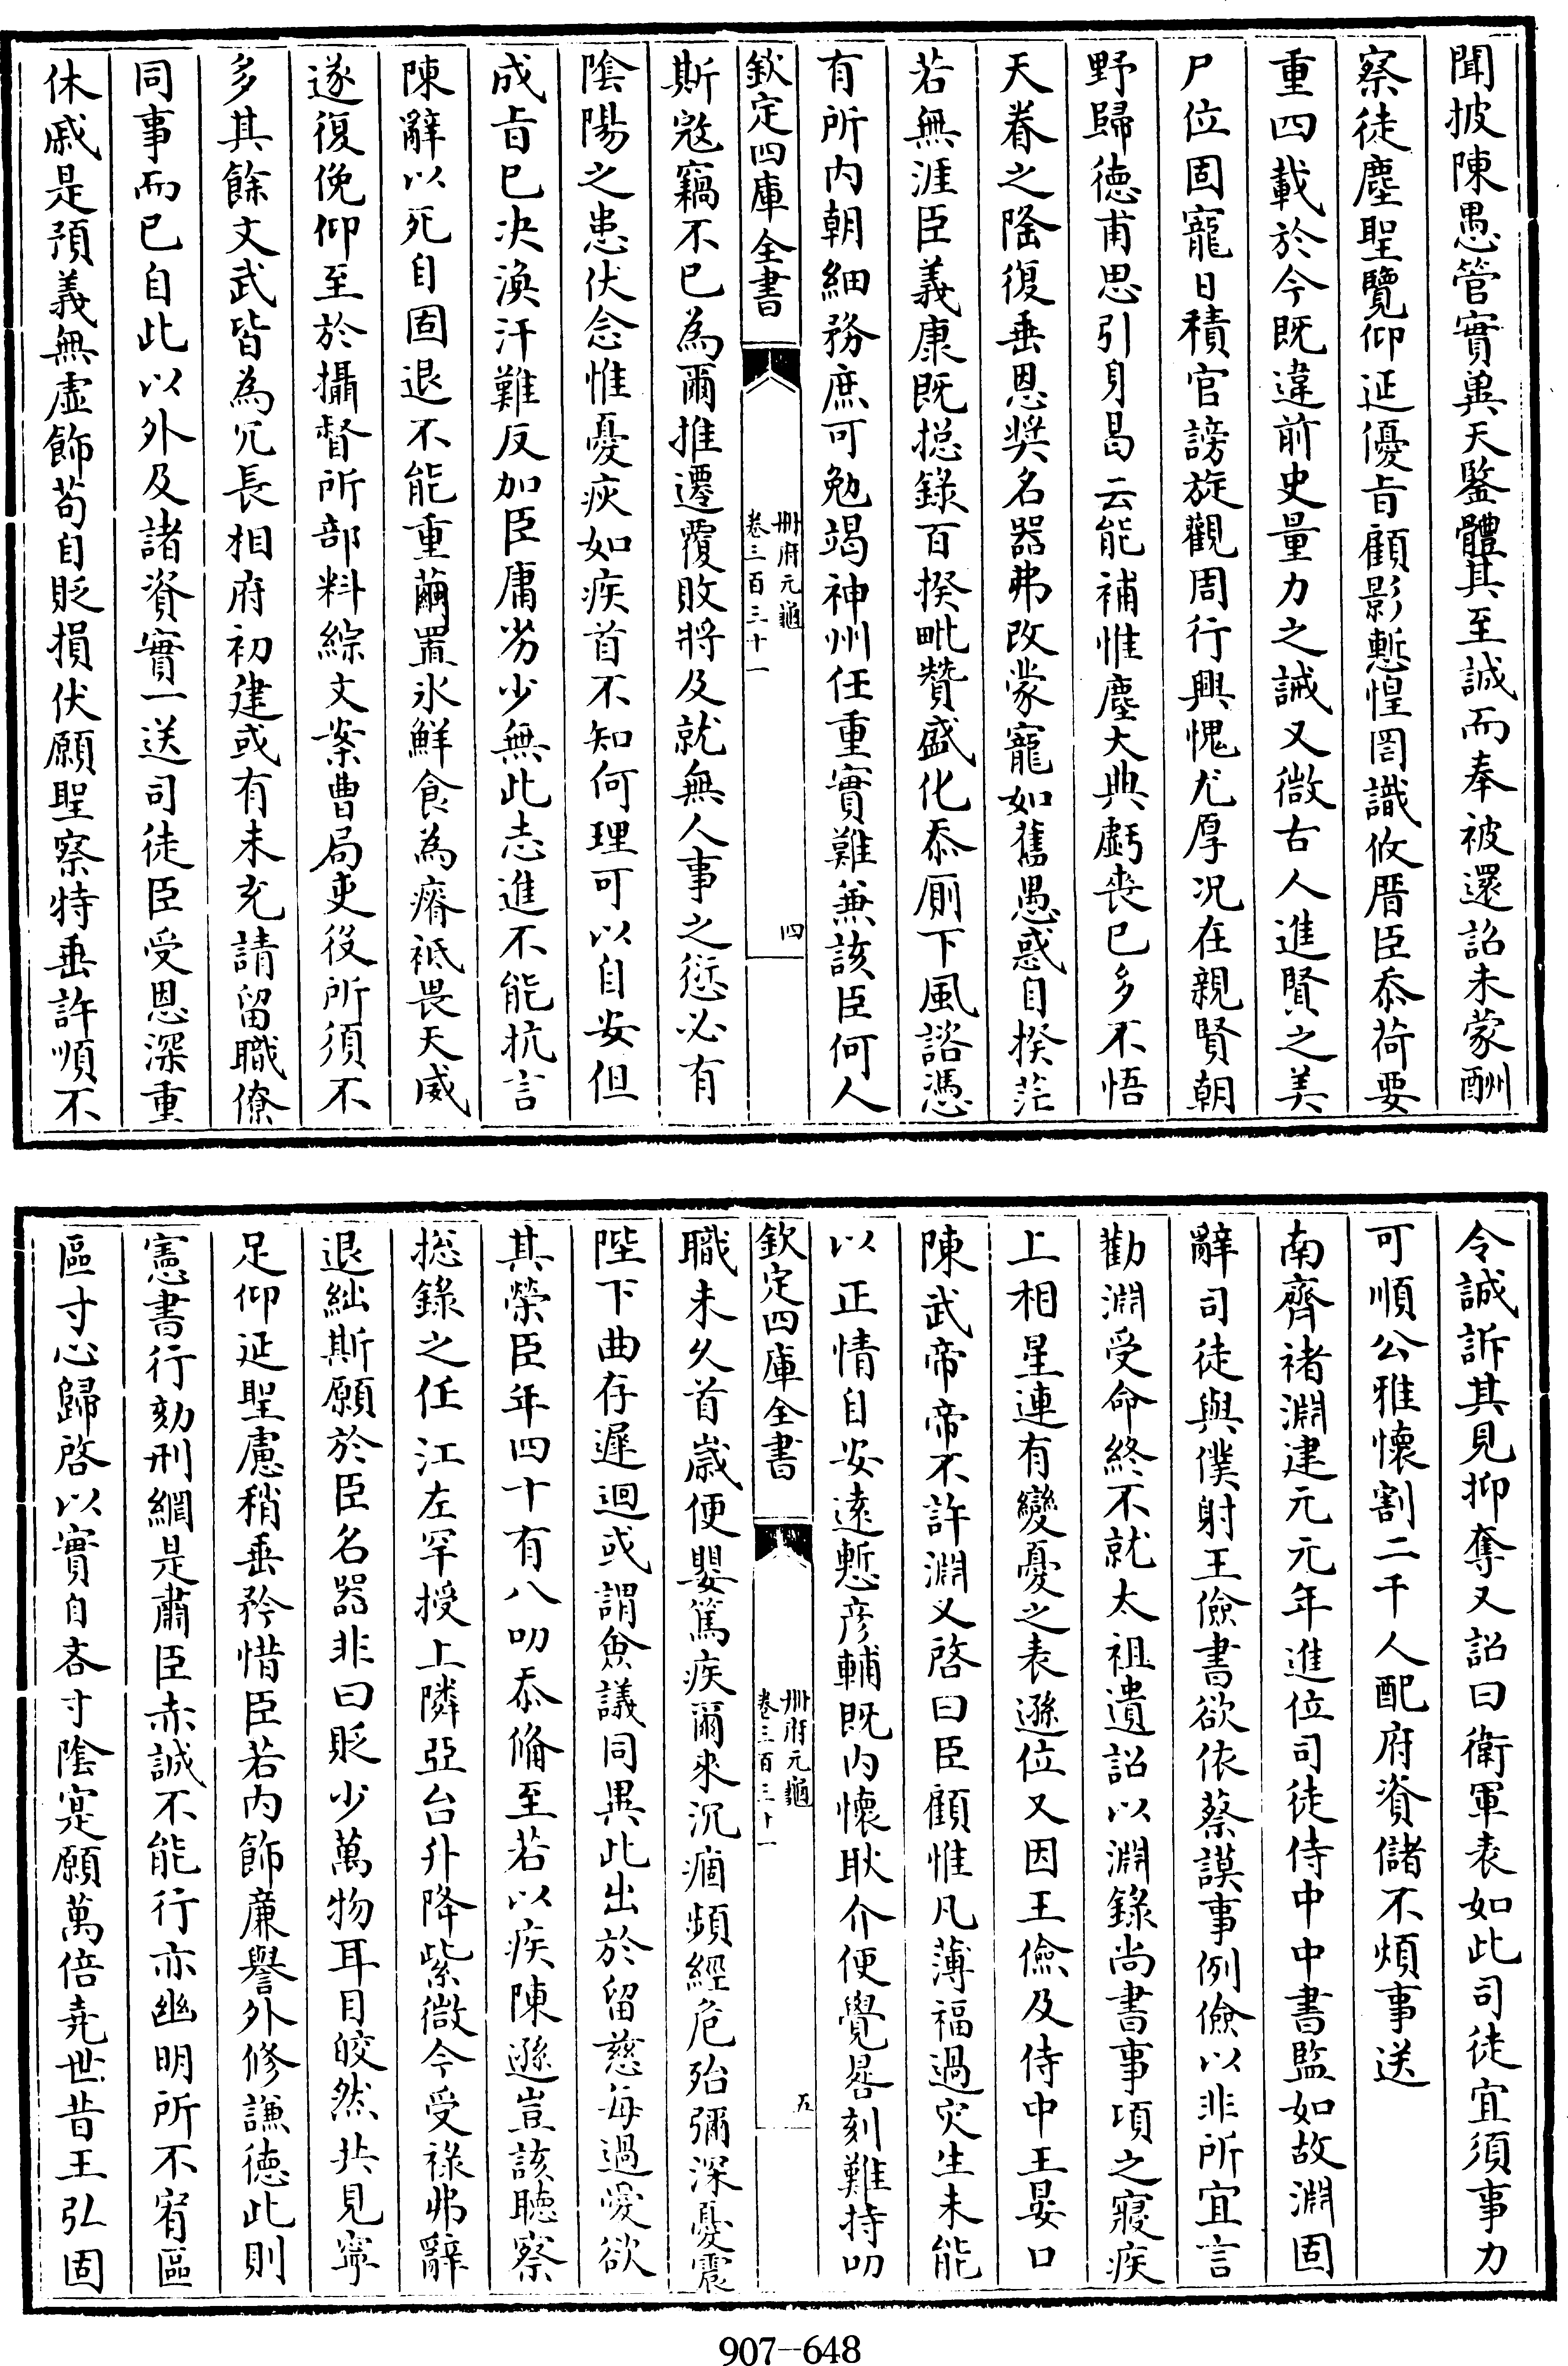 聞披陳愚管實冀天鑒體其至誠而奉被還詔未蒙酬
察徒塵聖覽仰延優旨顧影慙惶罔識攸厝臣忝荷要
重四載於今既違前史量力之誡又微古人進賢之美
尸位固寵日積官謗旋觀周行興愧尤厚况在親賢朝
野歸徳甫思引身曷云能補惟塵大典虧喪已多不悟
天眷之隆復垂恩奬名器弗改蒙寵如舊愚惑自揆茫
若無涯臣義康既揔錄百揆毗贊盛化忝厠下風諮憑
有所内朝細務庶可勉竭神州任重實難兼該臣何人
欽定四庫全書
册府元龜
卷三百三十一
四
斯寇竊不已為爾推遷覆敗將及就無人事之愆必有
陰陽之患伏念惟憂疢如疾首不知何理可以自安但
成旨已决渙汗難反加臣庸劣少無此志進不能抗言
陳辭以死自固退不能重繭置氷鮮食為瘠祗畏天威
遂復俛仰至於攝督所部料綜文案曹局吏役所須不
多其餘文武皆為冗長相府初建或有未充請留職僚
同事而已自此以外及諸資實一送司徒臣受恩深重
休戚是預義無虚飾苟自貶損伏願聖察特垂許順不
令誠訴其見抑奪又詔曰衛軍表如此司徒宜須事力
可順公雅懷割二千人配府資儲不煩事送
南齊褚淵建元元年進位司徒侍中中書監如故淵固
辭司徒與僕射王儉書欲依蔡謨事例儉以非所宜言
勸淵受命終不就太祖遺詔以淵錄尚書事項之寢疾
上相星連有變憂之表遜位又因王儉及侍中王晏口
陳武帝帝不許淵又啓曰臣顧惟凡薄福過灾生未能
以正情自安遠慙彦輔既内懷耿介便覺晷刻難持叨
欽定四庫全書
册府元龜
卷三百三十一
五
職未久首歲便嬰篤疾爾來沉痼頻經危殆彌深憂震
陛下曲存遲迴或謂僉議同異此出於留慈每過愛欲
其榮臣年四十有八叨忝偹至若以疾陳遜豈該聽察
揔錄之任江左罕授上隣亞台升降紫微今受祿弗辭
退絀斯願於臣名器非曰貶少萬物耳目皎然共見寧
足仰延聖慮稍垂矜惜臣若内飾廉譽外修謙徳此則
憲書行劾刑網是肅臣赤誠不能行亦幽明所不宥區
區寸心歸啓以實自吝寸陰寔願萬倍堯世昔王弘固
907--648